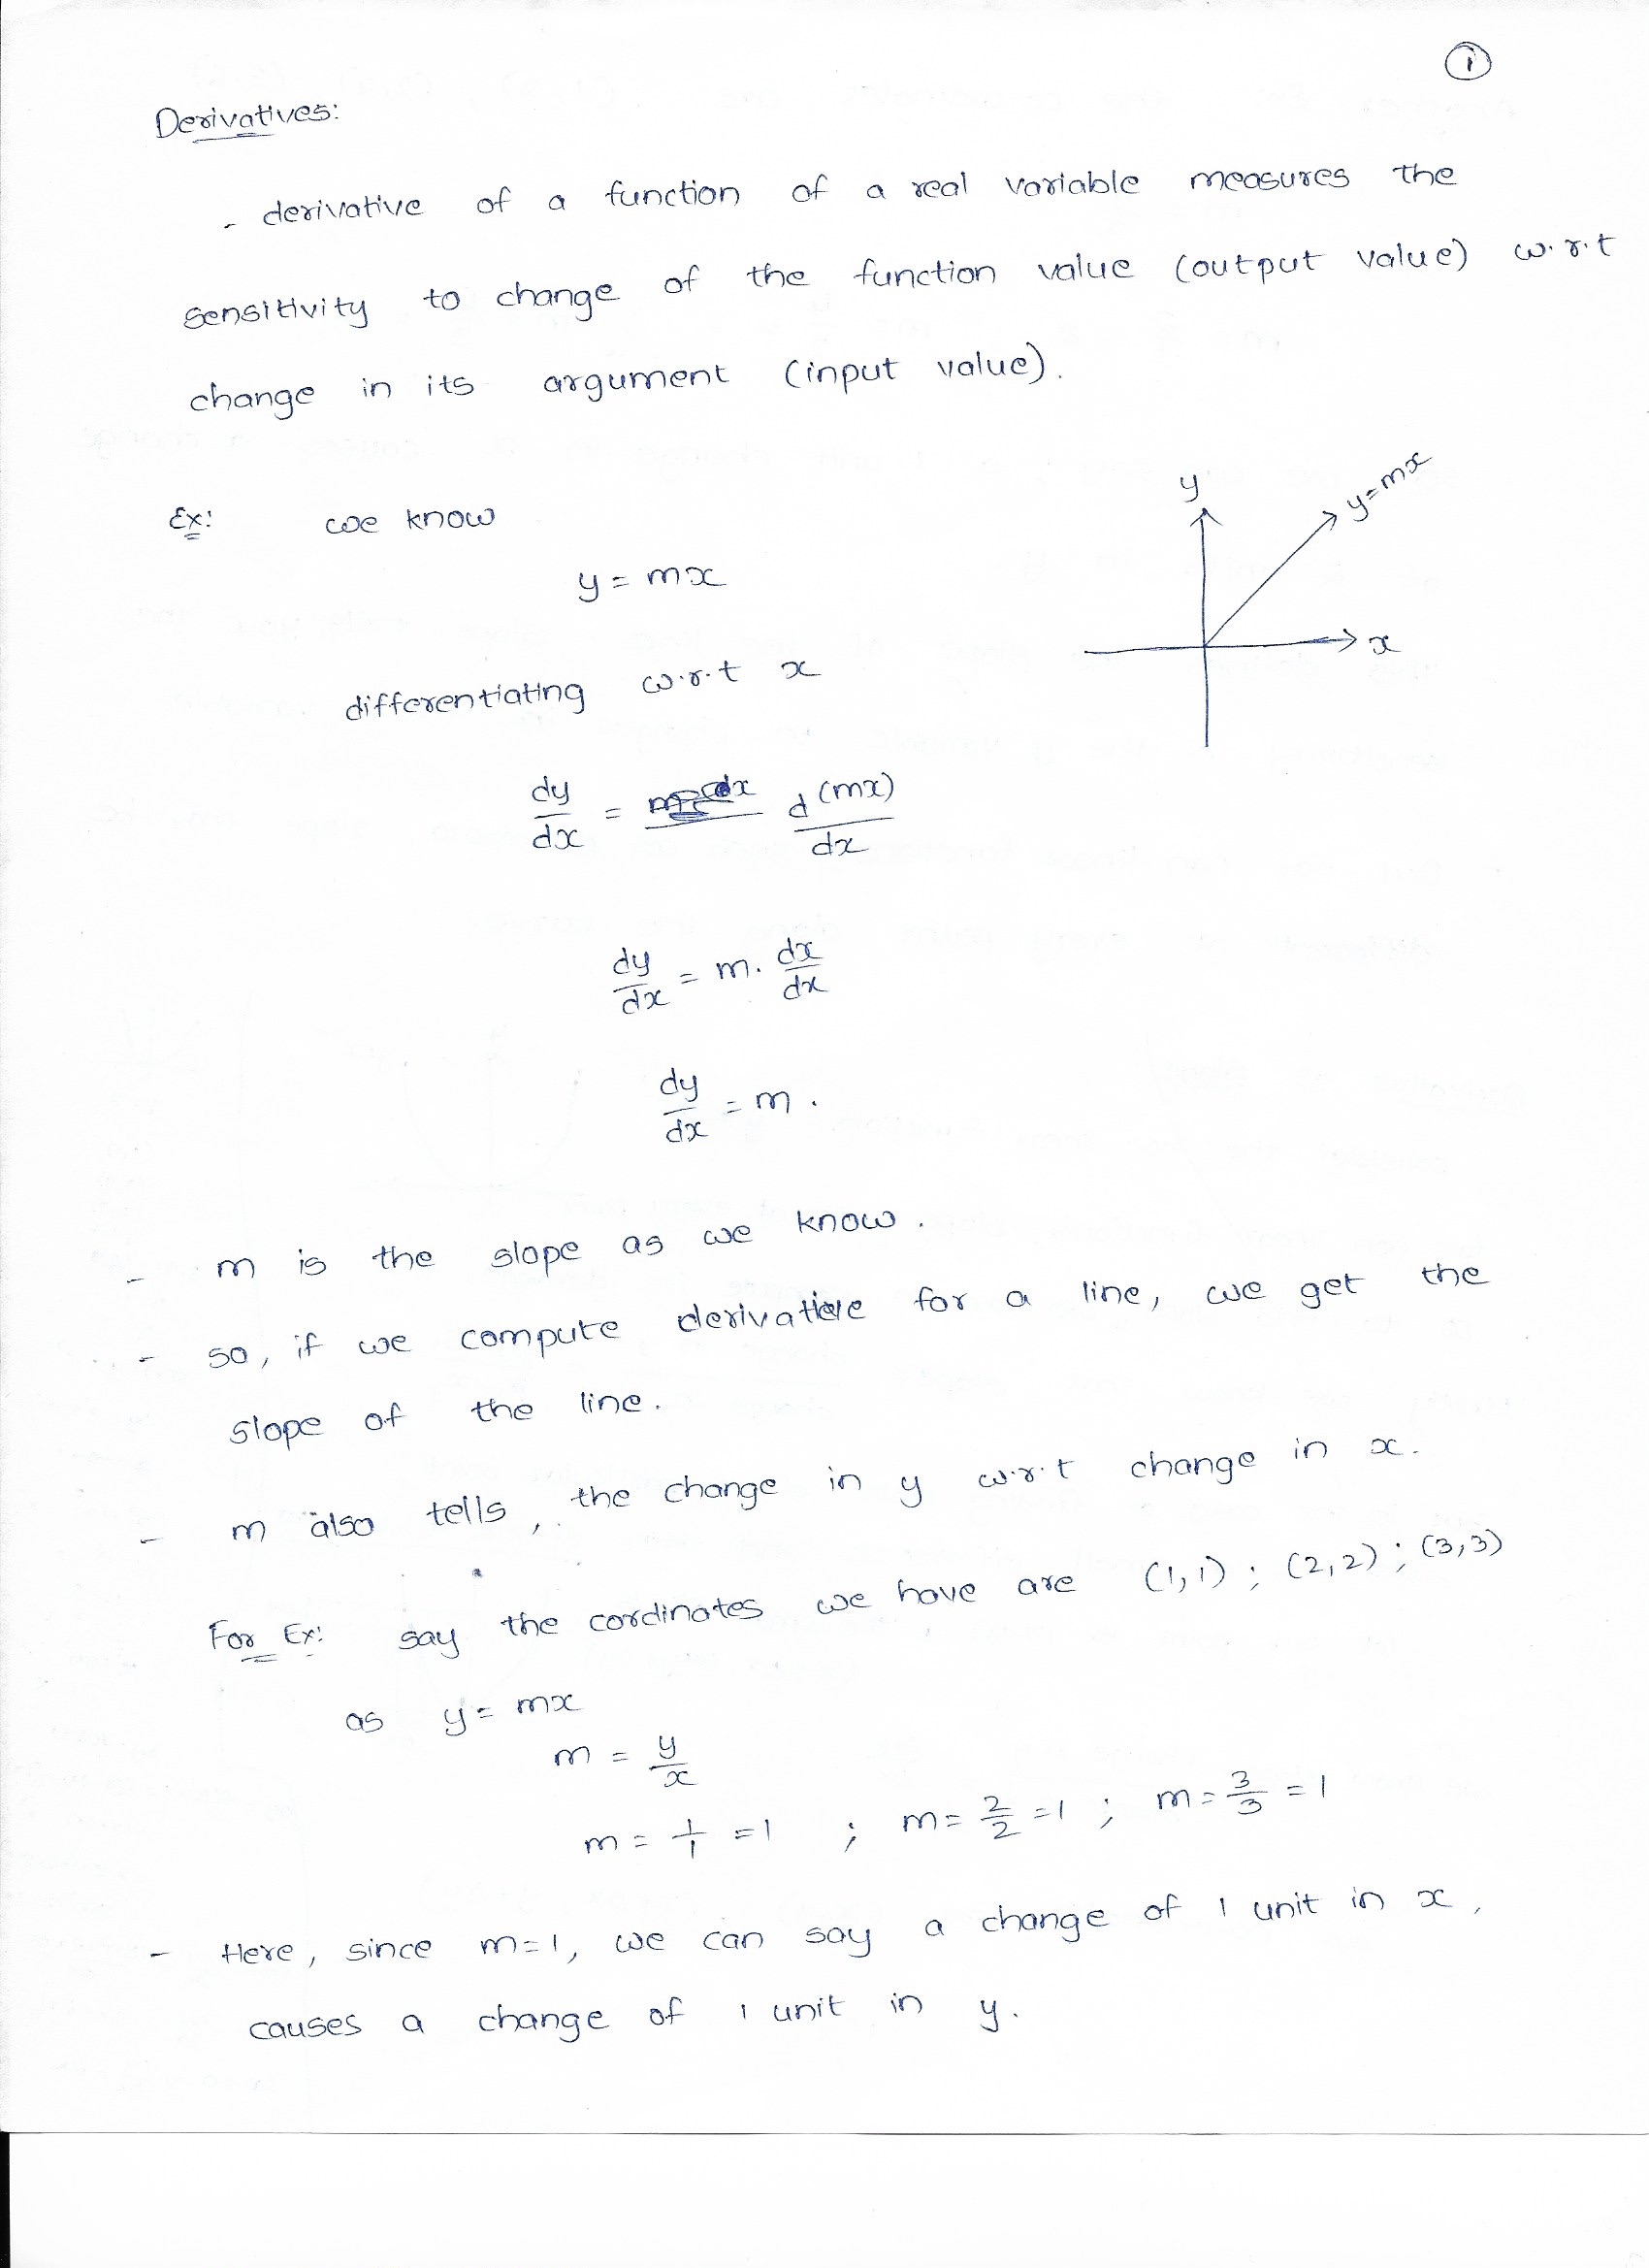 1
Derivatives:
- derivative of a function of a real variable measures the
sensitivity to change of the function value (output value) w.r.t
change in its argument (input value).
Ex: we know
y = mx
y
y=mx
x
differentiating w.r.t x
dy/dx = d(mx)/dx
dy/dx = m. dx/dx
dy/dx = m.
- m is the slope as we know.
- so, if we compute derivative for a line, we get the
slope of the line.
- m also tells, the change in y w.r.t change in x.
For Ex: say the cordinates we have are (1,1) ; (2,2) ; (3,3)
as y = mx
m = y/x
m = 1/1 = 1 ; m = 2/2 = 1 ; m = 3/3 = 1
- Here, since m=1, we can say a change of 1 unit in x,
causes a change of 1 unit in y.